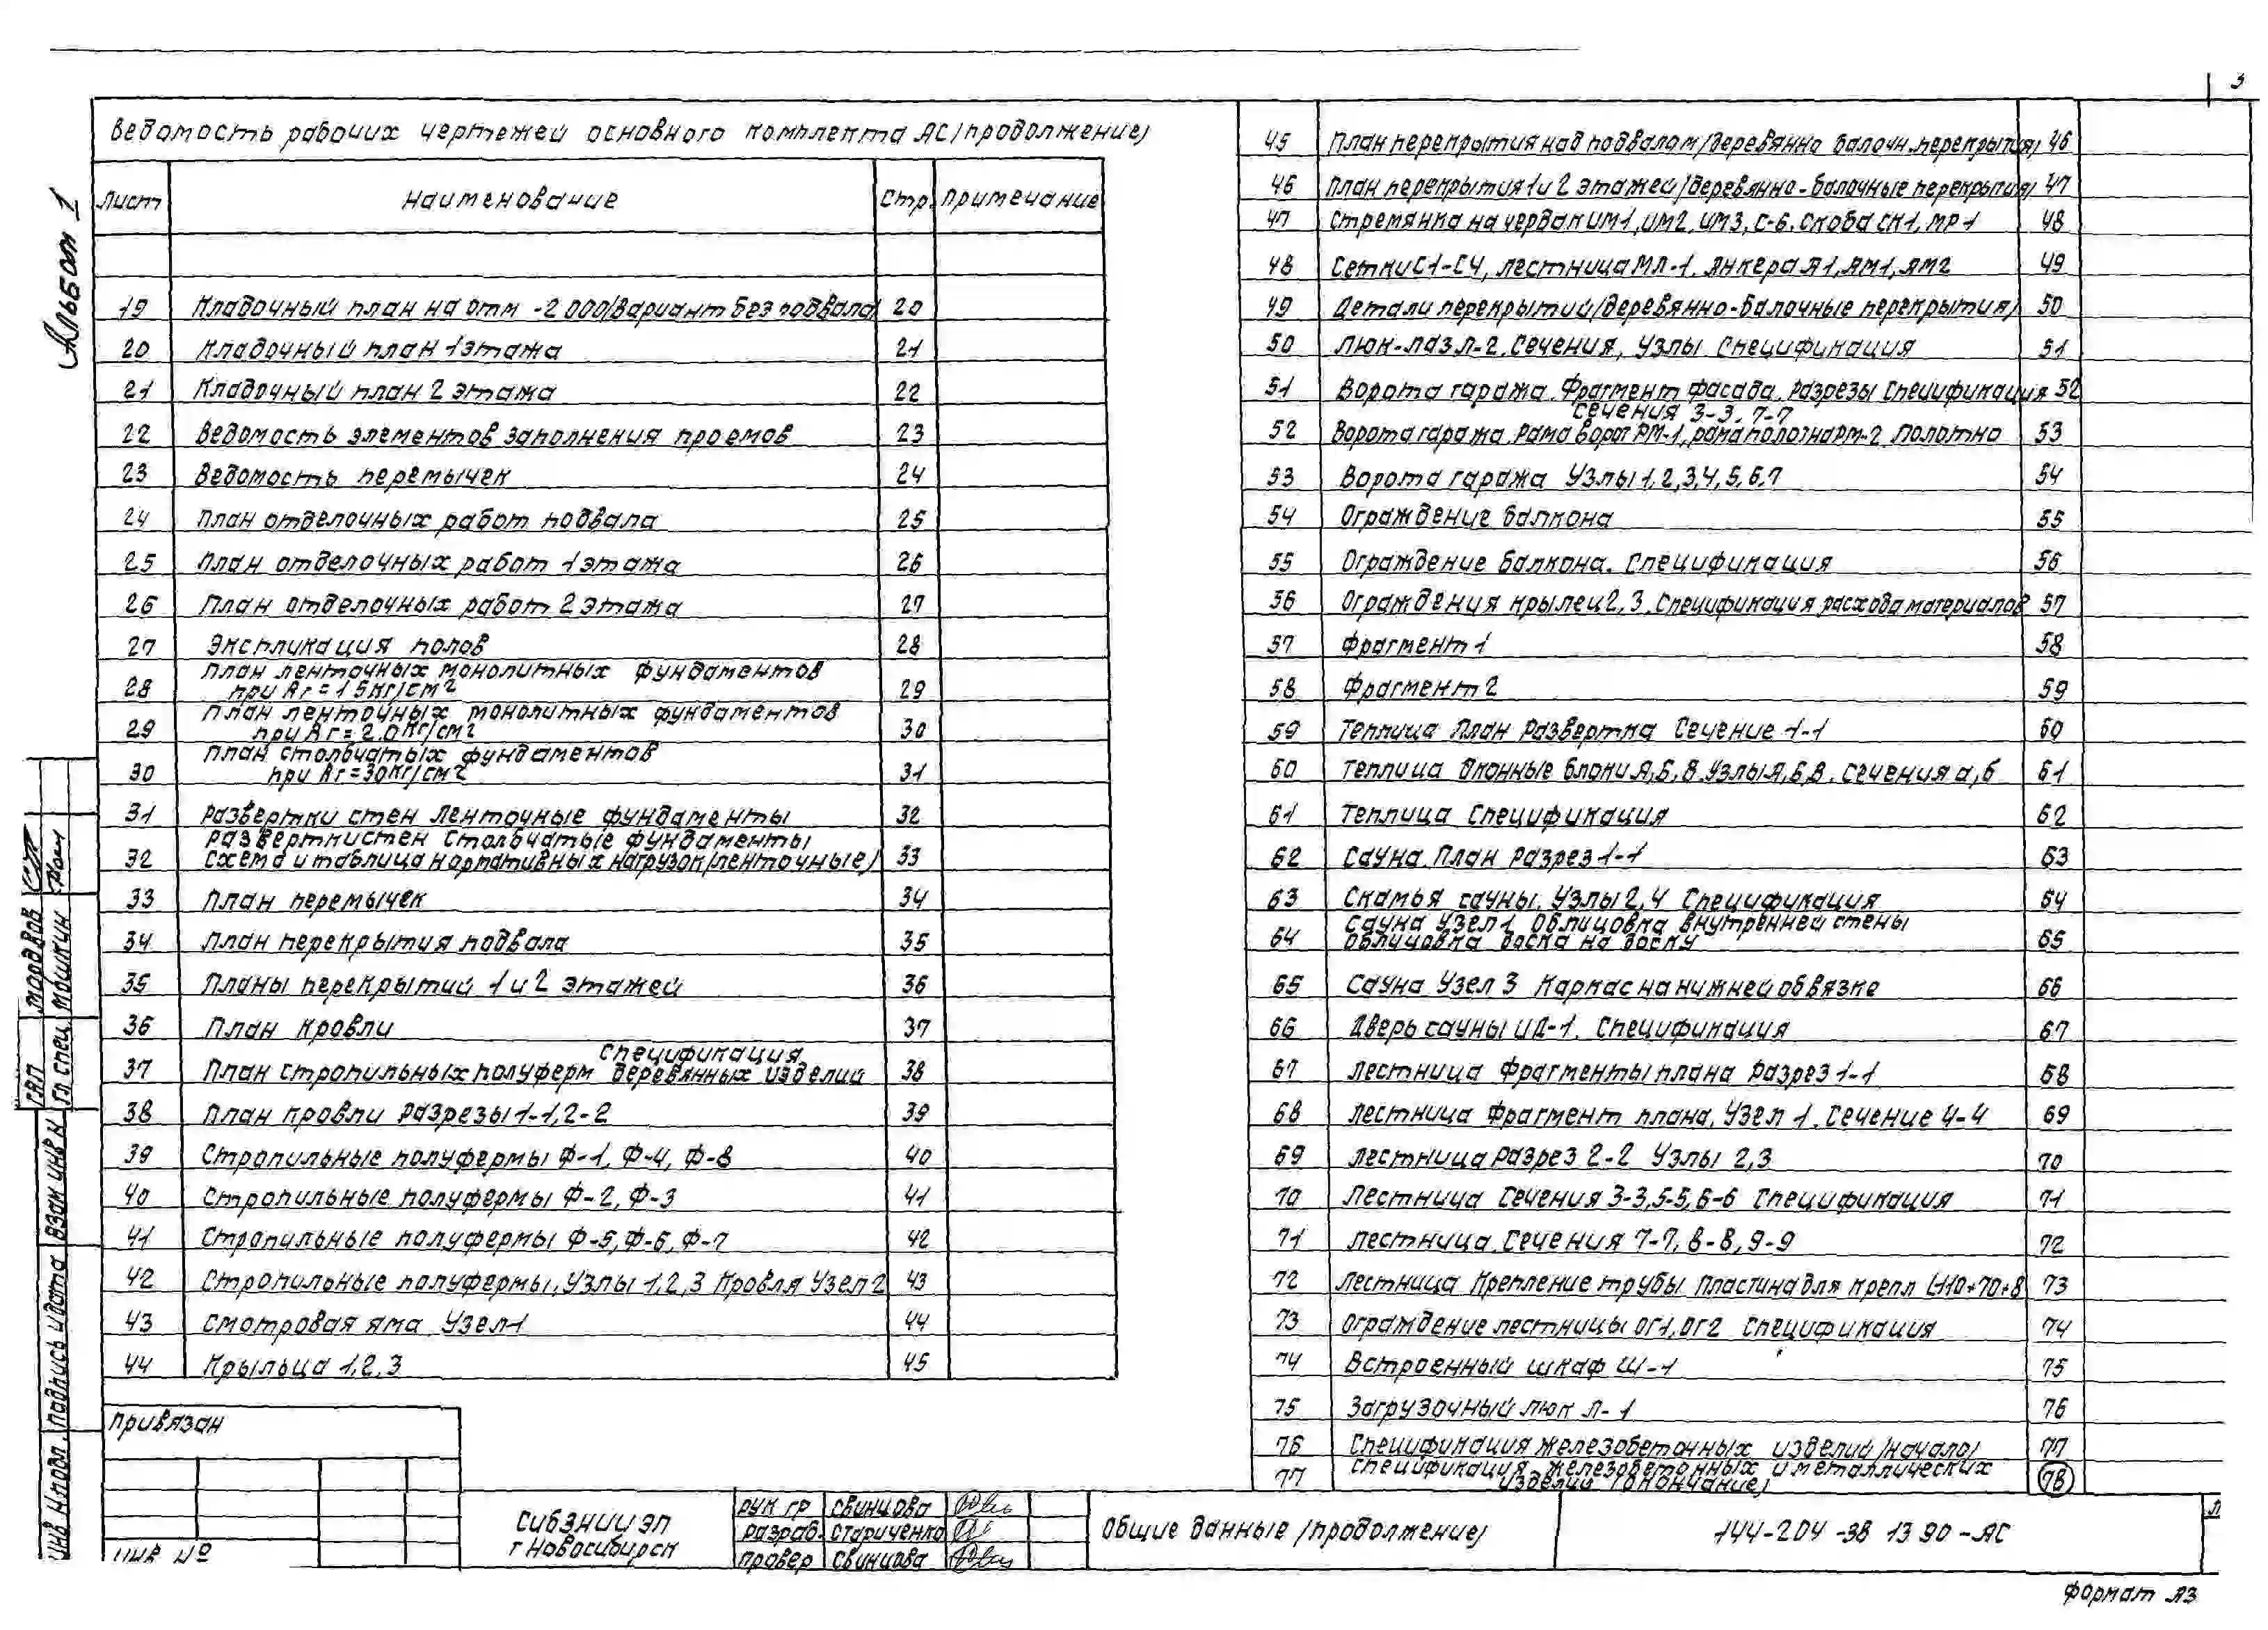 3
Альбом 1
Ведомость рабочих чертежей основного комплекта АС /продолжение/
Лист Наименование Стр. Примечание
19 Кладочный план на отм -2 000 /вариант без подвала/ 20
20 Кладочный план 1 этажа 21
21 Кладочный план 2 этажа 22
22 Ведомость элементов заполнения проемов 23
23 Ведомость перемычек 24
24 План отделочных работ подвала 25
25 План отделочных работ 1 этажа 26
26 План отделочных работ 2 этажа 27
27 Экспликация полов 28
План ленточных монолитных фундаментов
28 при Rг = 1 5 кг/см2 29
План ленточных монолитных фундаментов
29 при Rг = 2.0 кг/см2 30
План столбчатых фундаментов
30 при Rг = 30 кг/см2 31
31 Развертки стен Ленточные фундаменты 32
Развертки стен Столбчатые фундаменты
32 Схема и таблица нормативных нагрузок /ленточные/ 33
33 План перемычек 34
34 План перекрытия подвала 35
35 Планы перекрытий 1 и 2 этажей 36
36 План кровли 37
Спецификация
37 План стропильных полуферм деревянных изделий 38
38 План кровли Разрезы 1-1, 2-2 39
39 Стропильные полуфермы Ф-1, Ф-4, Ф-8 40
40 Стропильные полуфермы Ф-2, Ф-3 41
41 Стропильные полуфермы Ф-5, Ф-6, Ф-7 42
42 Стропильные полуфермы, Узлы 1, 2, 3 Кровля Узел 2 43
43 Смотровая яма Узел 1 44
44 Крыльца 1, 2, 3 45
45 План перекрытия над подвалом /деревянно балочн. перекрытия/ 46
46 План перекрытия 1 и 2 этажей /деревянно-балочные перекрытия/ 47
47 Стремянка на чердак ИМ1, ИМ2, ИМ3, С-6. Скоба СК1, МР1 48
48 Сетки С1-С4, лестница МЛ-1. Анкера А1, АМ1, АМ2 49
49 Детали перекрытий /деревянно-балочные перекрытия/ 50
50 Люк-лаз Л-2. Сечения, Узлы Спецификация 51
51 Ворота гаража. Фрагмент фасада. Разрезы Спецификация 52
Сечения 3-3, 7-7
52 Ворота гаража Рама ворот РМ-1, рама полотна РМ-2 Полотно 53
53 Ворота гаража Узлы 1, 2, 3, 4, 5, 6, 7 54
54 Ограждение балкона 55
55 Ограждение балкона. Спецификация 56
56 Ограждения крылец 2, 3. Спецификация расхода материалов 57
57 Фрагмент 1 58
58 Фрагмент 2 59
59 Теплица План Развертка Сечение 1-1 60
60 Теплица Оконные блоки А, Б, В Узлы А, Б, В. Сечения а, б 61
61 Теплица Спецификация 62
62 Сауна. План Разрез 1-1 63
63 Скамья сауны. Узлы 2, 4 Спецификация 64
Сауна Узел 1 Облицовка внутренней стены
64 Облицовка доска на доску 65
65 Сауна Узел 3 Каркас на нижней обвязке 66
66 Дверь сауны ИД-1. Спецификация 67
67 Лестница Фрагменты плана Разрез 1-1 68
68 Лестница Фрагмент плана, Узел 1. Сечение 4-4 69
69 Лестница Разрез 2-2 Узлы 2, 3 70
70 Лестница Сечения 3-3, 5-5, 6-6 Спецификация 71
71 Лестница. Сечения 7-7, 8-8, 9-9 72
72 Лестница Крепление трубы Пластина для крепл 73
73 Ограждение лестницы ОГ1, ОГ2 Спецификация 74
74 Встроенный шкаф Ш-1 75
75 Загрузочный люк Л-1 76
76 Спецификация железобетонных изделий /начало/ 77
Спецификация железобетонных и металлических
77 изделий /окончание/ 78
ГАП Мордвов
Гл спец Мошкин
Взам инв н
Подпись и дата
Инв н подл.
Привязан
Инв №
СибЗНИИЭП
г Новосибирск
Рук гр Свинцова
Разраб. Стариченко
Провер Свинцова
Общие данные /продолжение/
144-204-38 13 90 -АС
Л
Формат А3